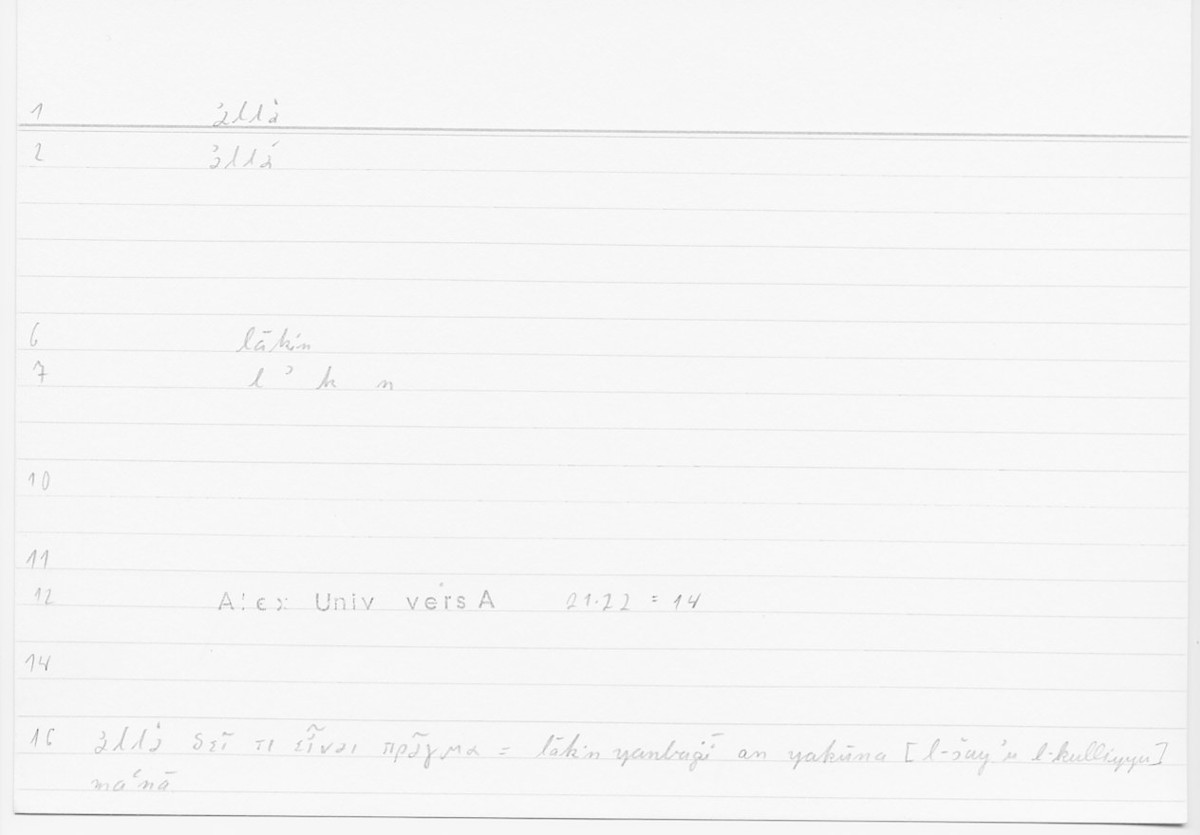 1 ἀλλὰ
2 ἀλλά
6 lākin
7 l ʾ k n
10
11
12 Alex Univ vers A 21.22 = 14
14
16 ἀλλὰ δεῖ τι εἶναι πρᾶγμα = lākin yanbaġī an yakūna [l-šayʾu l-kulliyyu]
maʿnā